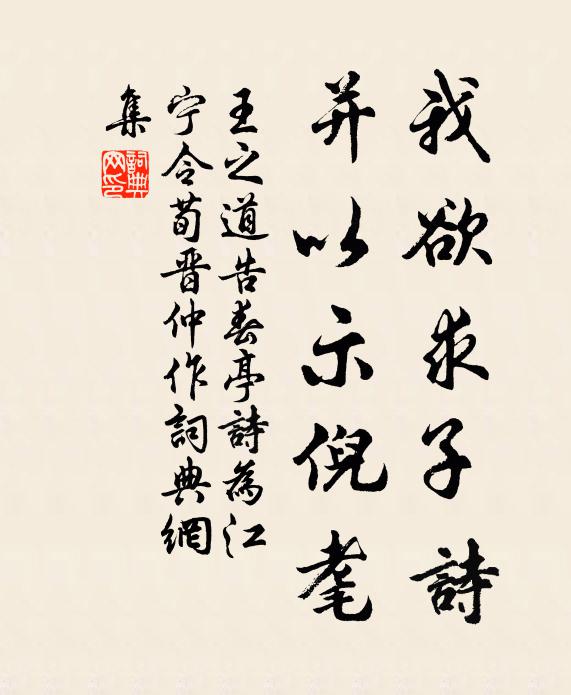 我欲求子詩
并以示倪耄
王之道告春亭詩為江
宁令荀晋仲作詞典網
集
詞典
网印